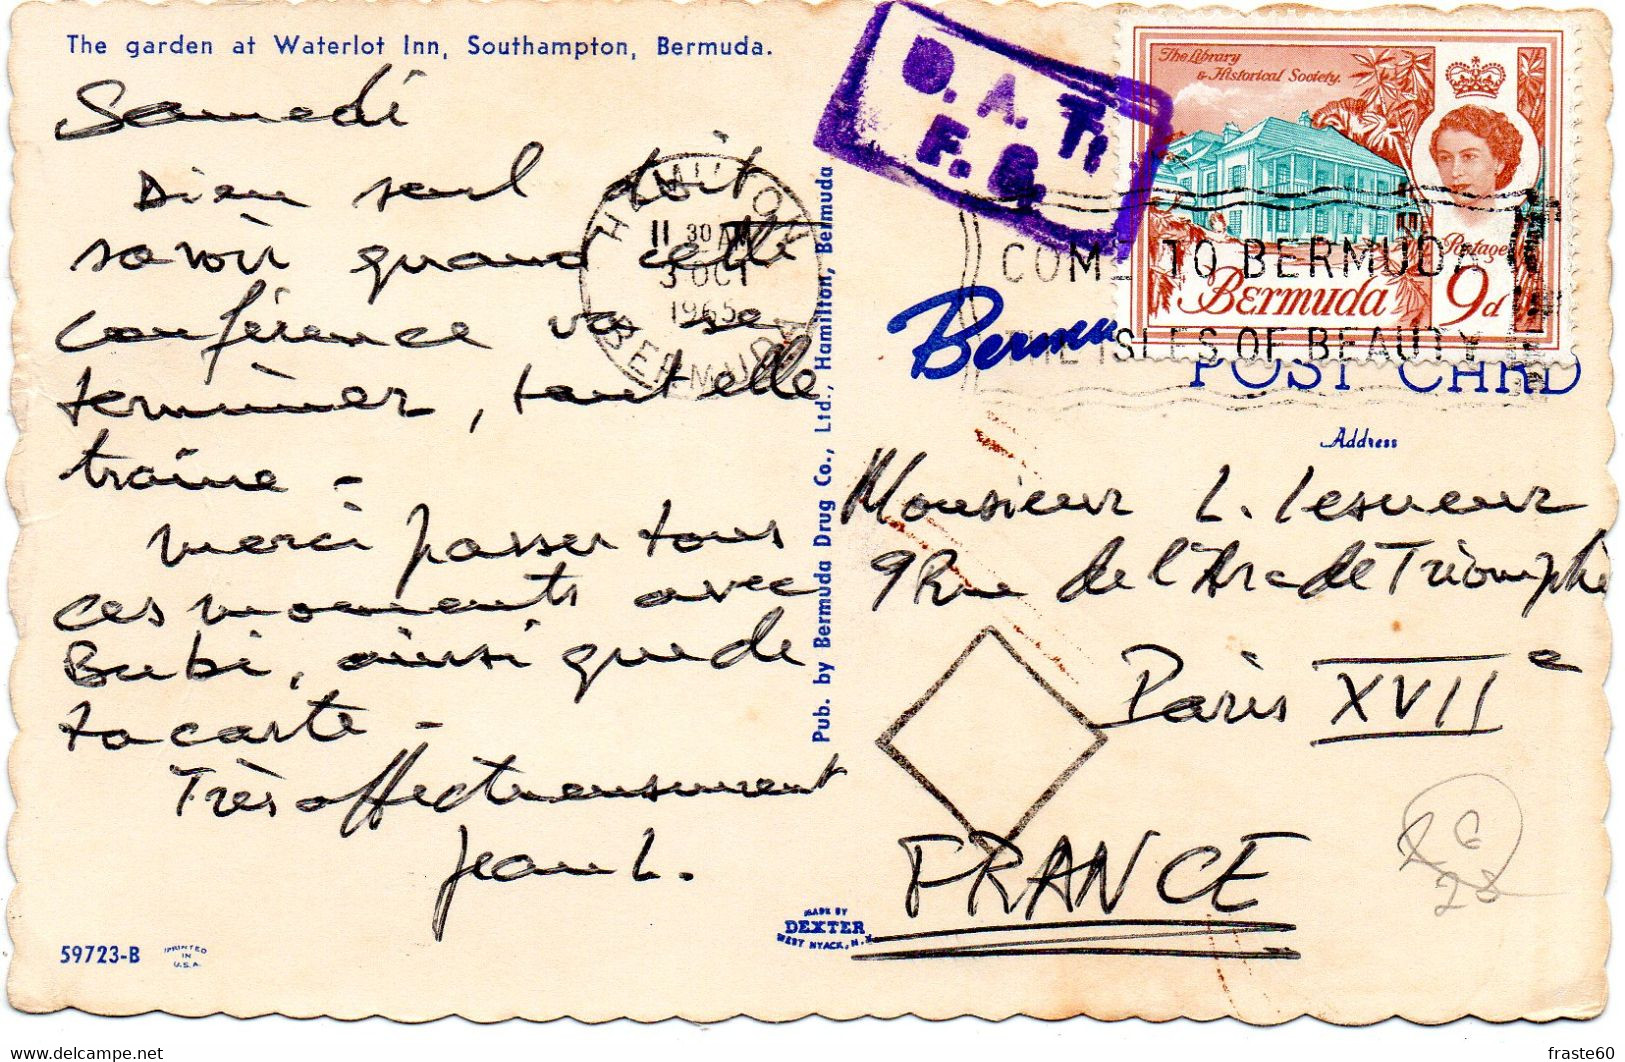 The garden at Waterlot Inn, Southampton, Bermuda.
Samedi
Dieu seul doit
savoir quand cette
conférence va se
terminer, tant elle
traine -
Merci passer tous
ces moments avec
Bubi, ainsi que de
ta carte -
Très affectueusement
Jean L.
59723-B
PRINTED
IN
U.S.A.
HAMILTON
11 30 AM
3 OCT
1965
BERMUDA
Pub. by Bermuda Drug Co., Ltd., Hamilton, Bermuda
O.A.T.
F.G.
The Library
& Historical Society.
Postage
Bermuda 9d
COME TO BERMUDA
THE ISLES OF BEAUTY
Bermu
POST CARD
Address
Monsieur L. Lesueur
9 Rue de l'Arc de Triomphe
Paris XVIIe
FRANCE
MADE BY
DEXTER
WEST NYACK, N.Y.
28
fraste60